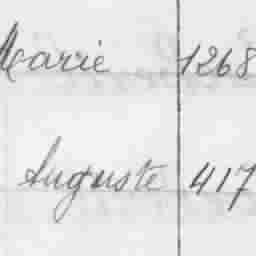 Marie 1268
Auguste 417